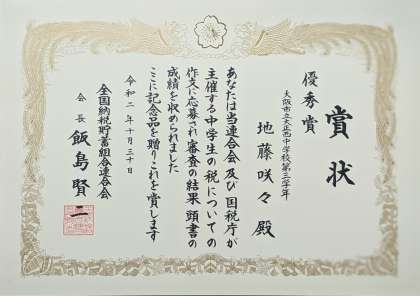 賞状
優秀賞
大阪市立大正西中学校第三学年
地藤咲々殿
あなたは当連合会及び国税庁が
主催する中学生の税についての
作文に応募され審査の結果頭書の
成績を収められました
ここに記念品を贈りこれを賞します
令和二年十月三十日
全国納税貯蓄組合連合会
会長 飯島賢二